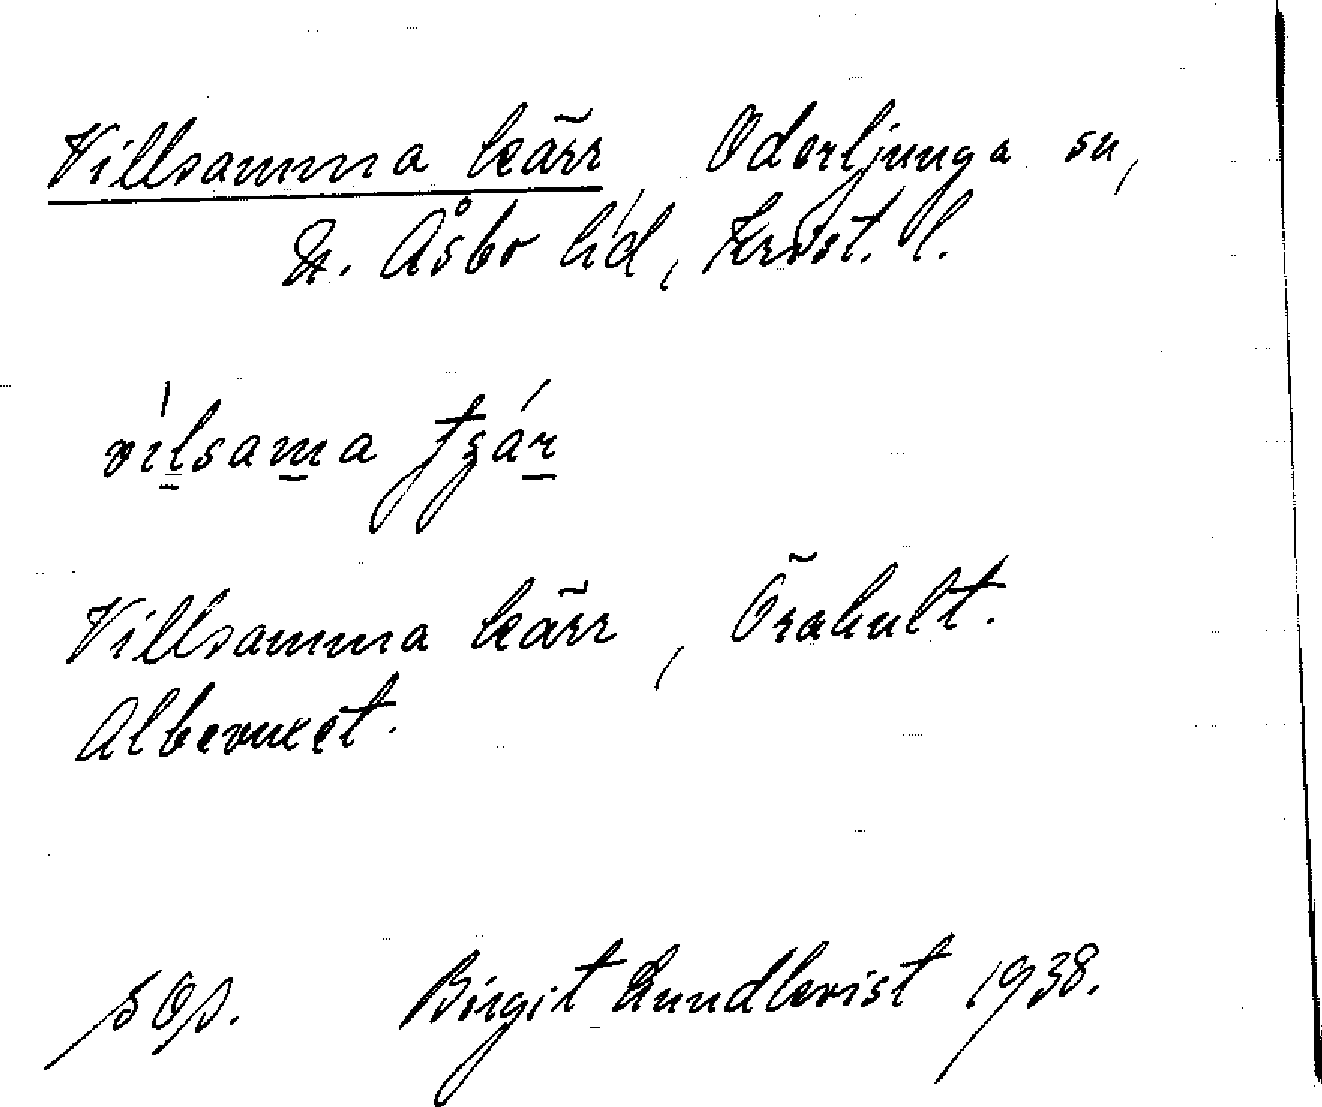 Villsamma kärr, Oderljunga sn,
N. Åsbo hd, Krist. l.
vilsama
Villsamma kärr, Örahult.
Albevuxet.
Birgit Lundkvist 1938.